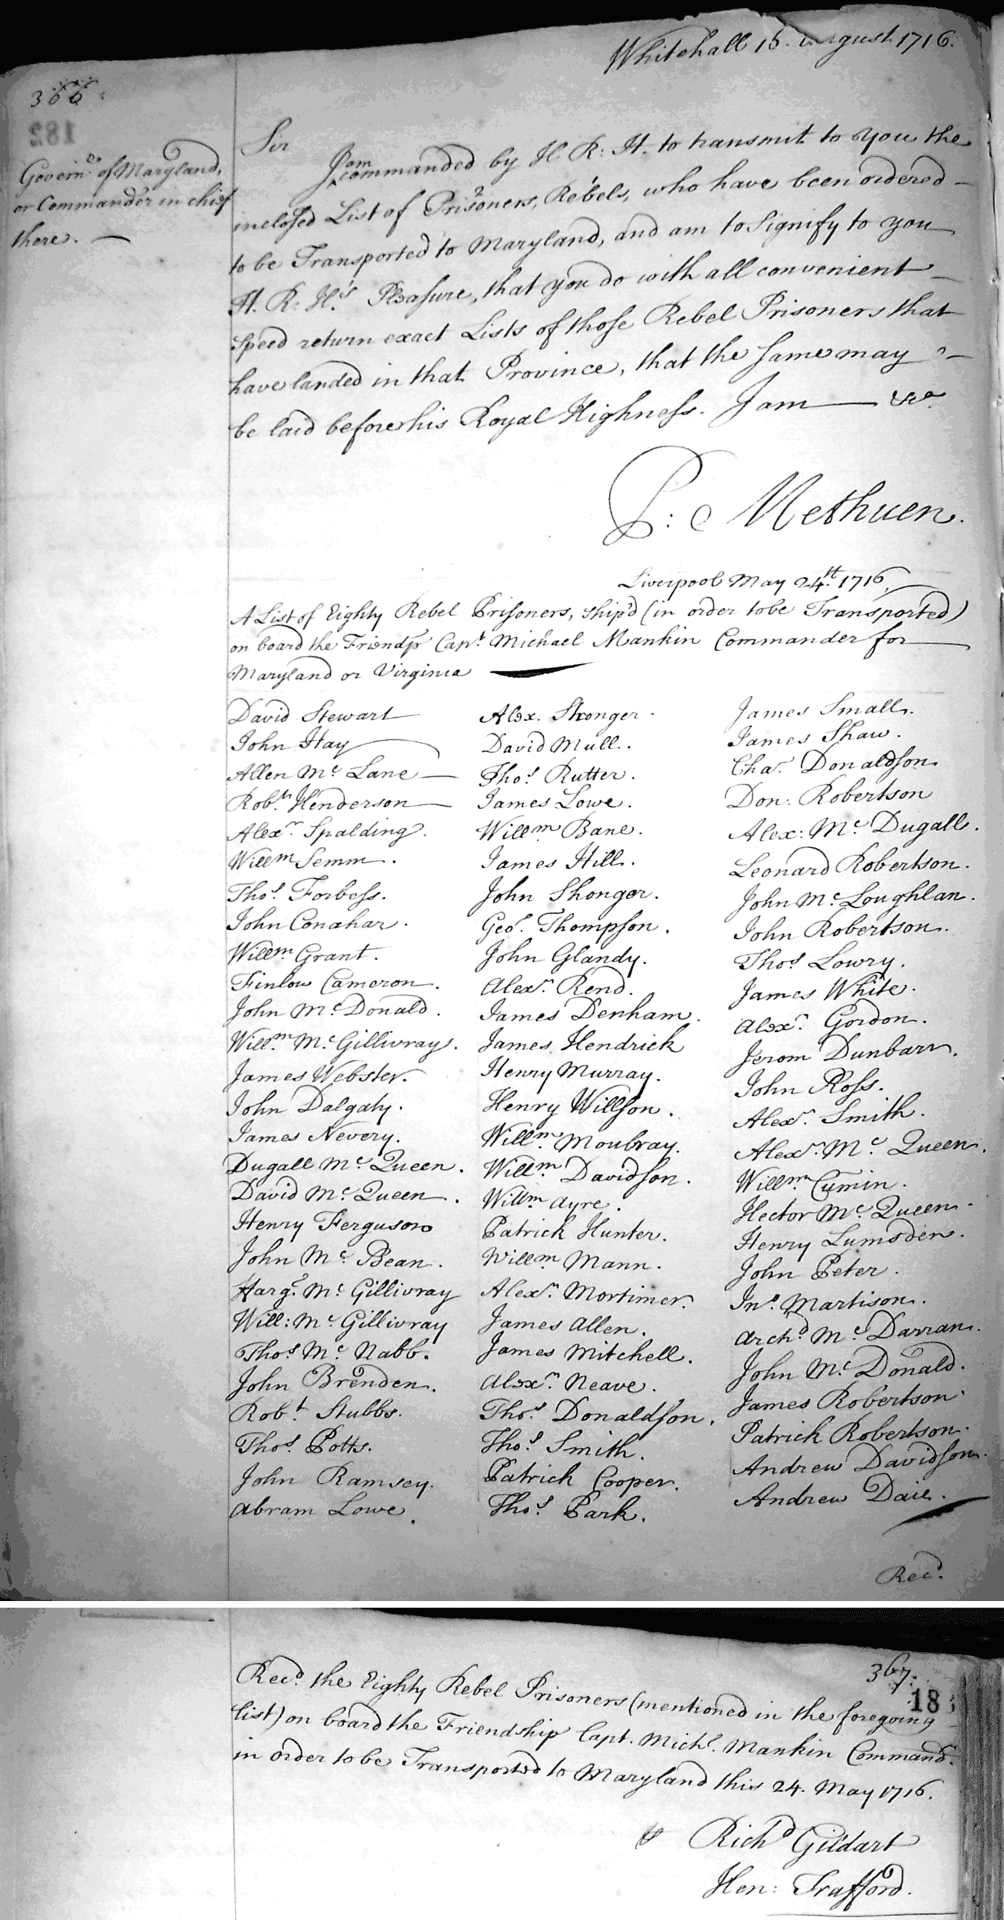 Whitehall 15. August 1716.
366
182
Govern.r of Maryland,
or Commander in chief
there. —
Sir
I am commanded by H. R. H. to transmit to you the
inclosed List of Prisoners, Rebels, who have been ordered —
to be Transported to Maryland, and am to signify to you
H. R. H's Pleasure, that you do with all convenient —
speed return exact Lists of those Rebel Prisoners that
have landed in that Province, that the same may —
be laid before his Royal Highness. I am — &c.
P: Methuen.
Liverpool May 24.th 1716.
A List of Eighty Rebel Prisoners, ship'd (in order to be Transported)
on board the Friendp Capt. Michael Mankin Commander for
Maryland or Virginia —
David Stewart
John Hay
Allen Mc Lane
Robt. Henderson
Alexr. Spalding.
Willm Semm.
Thos. Forbess.
John Conahar.
Willm. Grant.
Finlow Cameron.
John Mc Donald.
Willm. Mc Gillivray.
James Webster.
John Dalgaty.
James Nevery.
Dugall Mc Queen.
David Mc Queen.
Henry Ferguson
John Mc Bean.
Fargr. Mc Gillivray
Will: Mc Gillivray
Thos. Mc Nabb.
John Brenden.
Robt. Stubbs.
Thos. Potts.
John Ramsey.
Abram Lowe.
Alex. Shonger.
David Mull.
Thos. Rutter.
James Lowe.
Willm Bane.
James Hill.
John Shonger.
Geo. Thompson.
John Glandy.
Alexr. Rend.
James Denham.
James Hendrick
Henry Murray.
Henry Willson.
Willm. Moubray.
Willm. Davidson.
Willm Ayre.
Patrick Hunter.
Willm Mann.
Alexr. Mortimer.
James Allen.
James Mitchell.
Alexr. Neave.
Thos. Donaldson.
Thos. Smith.
Patrick Cooper.
Thos. Park.
James Small.
James Shaw.
Cha. Donaldson
Don. Robertson
Alex: Mc Dugall.
Leonard Robertson.
John Mc Loughlan.
John Robertson.
Thos Lowry.
James White.
Alexr. Gordon.
Jerom Dunbarr.
John Ross.
Alexr. Smith.
Alexr. Mc Queen.
Willm. Cumin.
Hector Mc Queen.
Henry Lumsden.
John Peter.
Jno. Martison.
Archd. Mc Darran.
John Mc Donald.
James Robertson.
Patrick Robertson.
Andrew Davidson.
Andrew Daie.
Recd.
367.
18
Recd. the Eighty Rebel Prisoners (mentioned in the foregoing
List) on board the Friendship Capt. Michl. Mankin Command.r
in order to be Transported to Maryland this 24. May 1716.
Richd Gildart
Hen: Trafford.